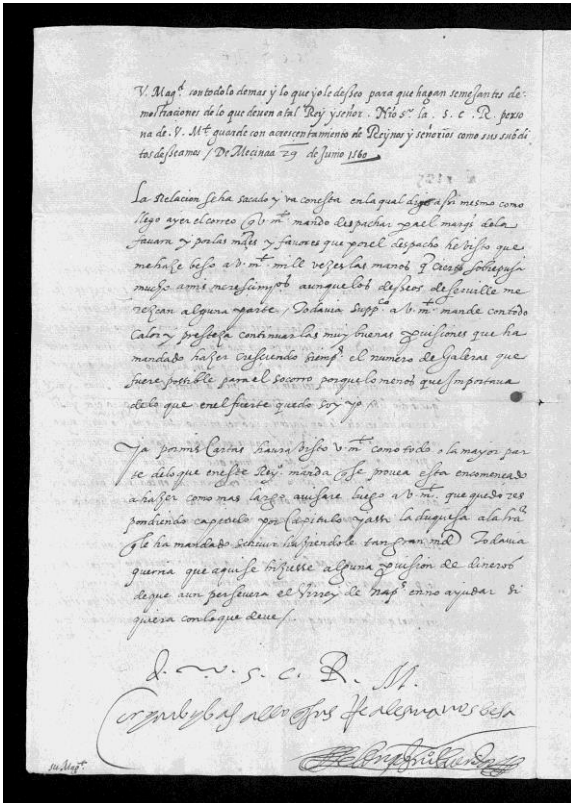 V. Mag.d con todo lo demas y lo que yo le desseo para que hagan semejantes de-
mostraciones de lo que deven a tal Rey y señor. Nro s.r la. S. C. R. perso
na de. V. M.t guarde con acrescentamiento de Reynos y señorios como sus subdi
tos desseamos / De Mecina a 29 de Junio 1560
La Relacion se ha sacado y va con esta en la qual digo assi mismo como
llego ayer el correo q V. m.t mando despachar para el marq.s de la
favara y por las mdes y favores que por el despacho he visto que
me haze beso a V. m.t mill vezes las manos q cierto sobrepuja
mucho a mis merescimj.os aunque los desseos de serville me
rezcan alguna parte / Todavia supp.co a V. m.t mande con todo
calor y presteza continuar las muy buenas provisiones que ha
mandado hazer cresciendo siemp. el numero de Galeras que
fuere possible para el socorro porque lo menos que Importava
de lo que en el fuerte quedo soy yo /.
Ya por mis Cartas havra visto V. m.t como todo o la mayor par
te de lo que en este Rey.o manda q se provea esta encomençado
a hazer como mas largo avisare luego a V. m.t que quedo res
pondiendo capitolo por Capitulo y assi la duquesa a la
q le ha mandado screvir haziendole tan gran md Todavia
querria que aqui se hiziesse alguna provision de dineros
de que aun persevera el Virrey de Nap.s en no ayudar si
quiera con lo que deve /.
D. V. S. C. R. M.
su Mag.t